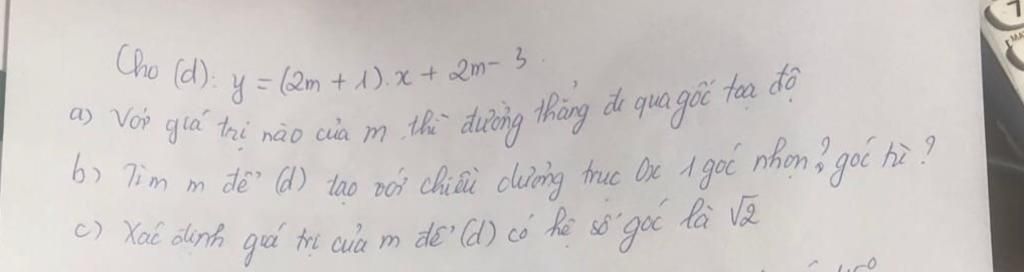 Cho (d): y = (2m + 1). x + 2m - 3.
a) Với giá trị nào của m thì đường thẳng đi qua gốc toạ độ
b) Tìm m để (d) tạo với chiều dương trục Ox 1 góc nhọn? góc tù?
c) Xác định giá trị của m để (d) có hệ số góc là √2